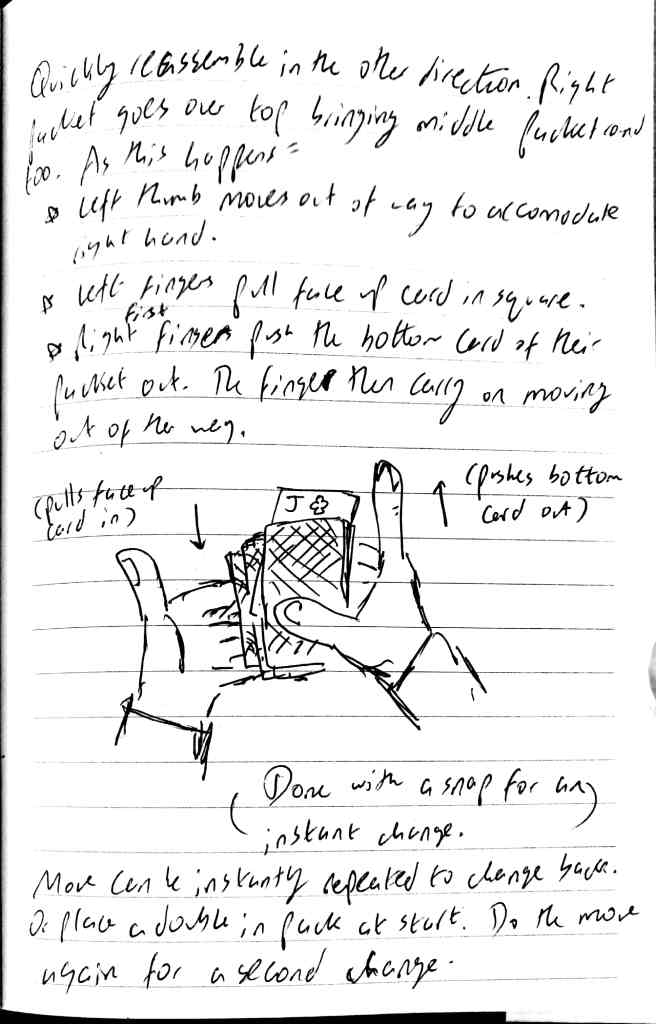 Quickly reassemble in the other direction. Right
packet goes over top bringing middle packet round
too. As this happens =
left thumb moves out of way to accomodate
right hand.
left fingers pull face up card in square.
first
Right fingers push the bottom card of their
packet out. The finger then carry on moving
out of the way.
(pulls face up
card in)
(pushes bottom
card out)
J ♣
(Done with a snap for an)
instant change.
Move can be instantly repeated to change back.
Or place a double in pack at start. Do the move
again for a second change.